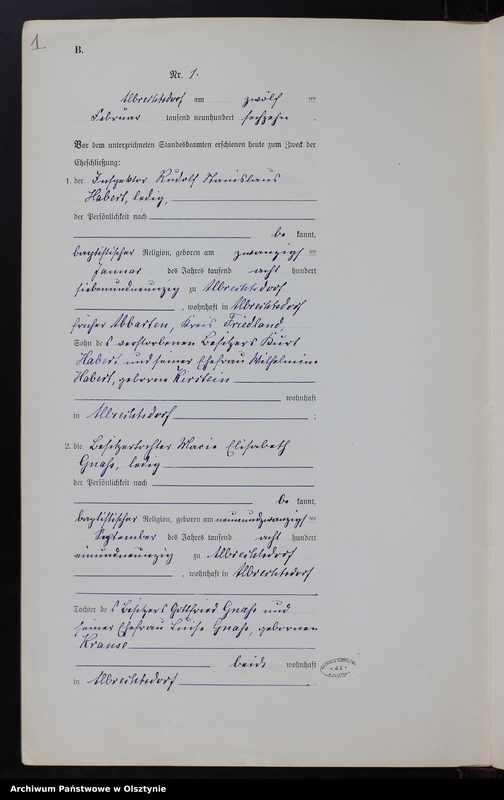 1
B.
Nr. 1.
Albrechtsdorf am zwölf ten
Februar tausend neunhundert sechzehn .
Vor dem unterzeichneten Standesbeamten erschienen heute zum Zweck der
Eheschließung:
1. der Inspektor Rudolf Stanislaus
Habert, ledig,
der Persönlichkeit nach
be kannt,
baptistischer Religion, geboren am zwanzigs ten
Januar des Jahres tausend acht hundert
siebenundneunzig zu Albrechtsdorf
, wohnhaft in Albrechtsdorf
früher Abbarten, Kreis Friedland,
Sohn des verstorbenen Besitzers Kurt
Habert und seiner Ehefrau Wilhelmine
Habert, geborne Kirstein
wohnhaft
in Albrechtsdorf ;
2. die Besitzertochter Marie Elisabeth
Gnass, ledig
der Persönlichkeit nach
be kannt,
baptistischer Religion, geboren am neunundzwanzigs ten
September des Jahres tausend acht hundert
einundneunzig zu Albrechtsdorf
, wohnhaft in Albrechtsdorf
Tochter des Besitzers Gottfried Gnass und
seiner Ehefrau Luise Gnass, gebornen
Krause
beide wohnhaft
in Albrechtsdorf .
Archiwum Państwowe w Olsztynie